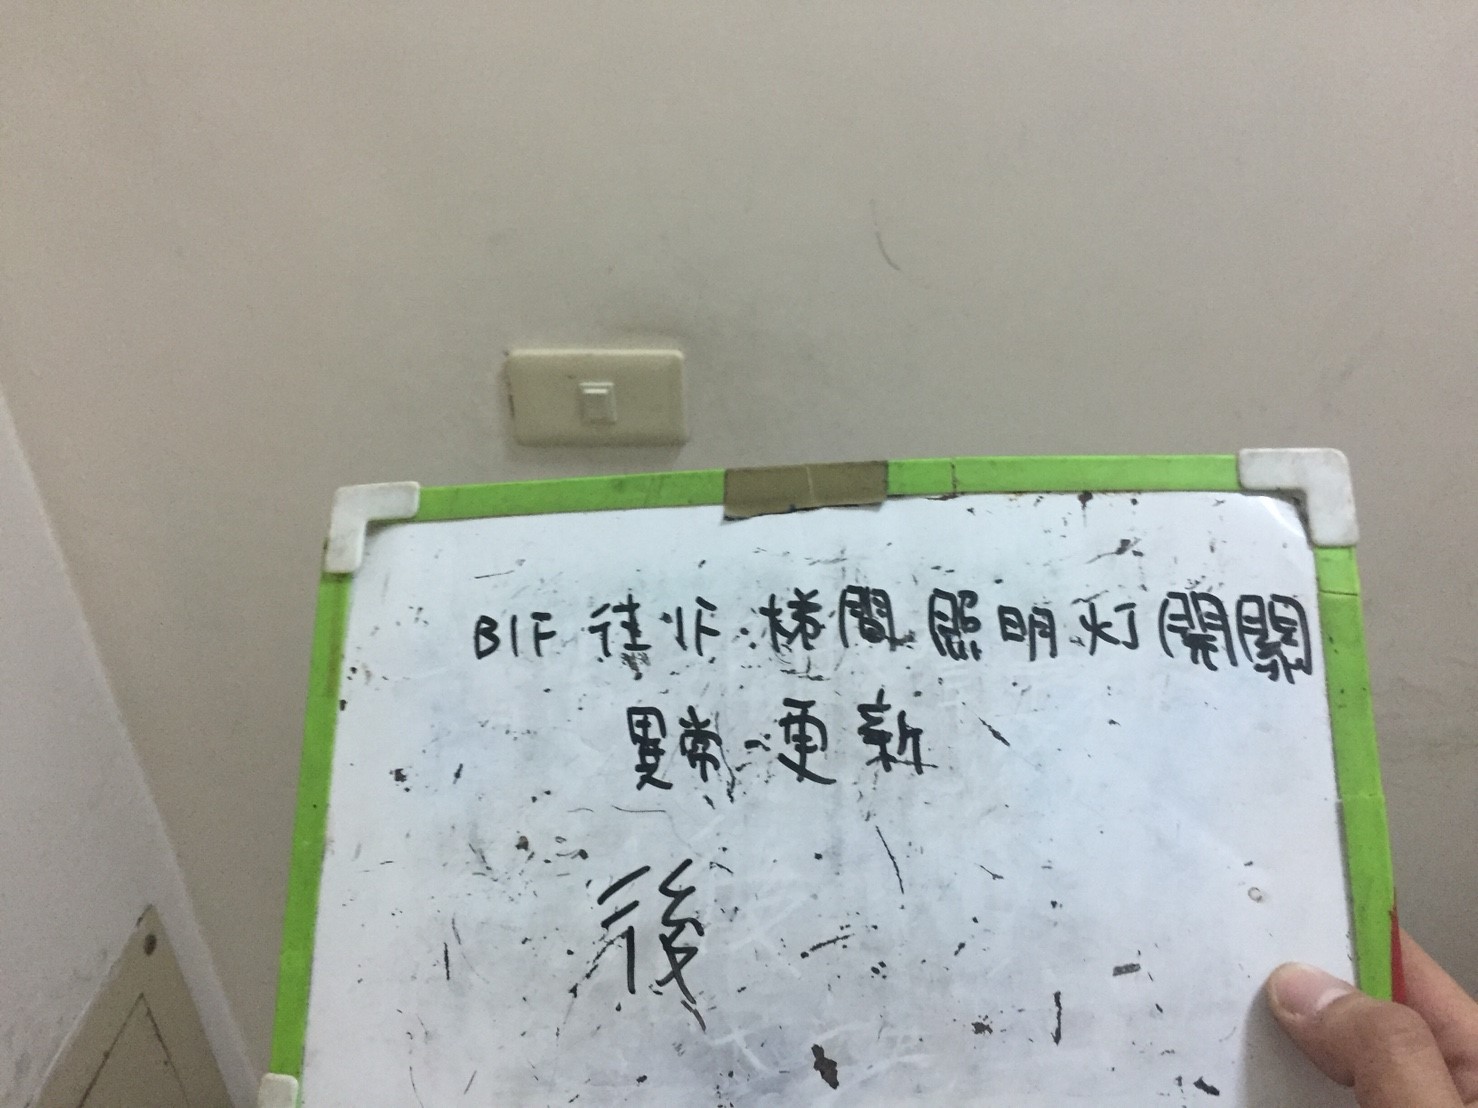 B1F往1F梯間照明灯開關
異常更新
後